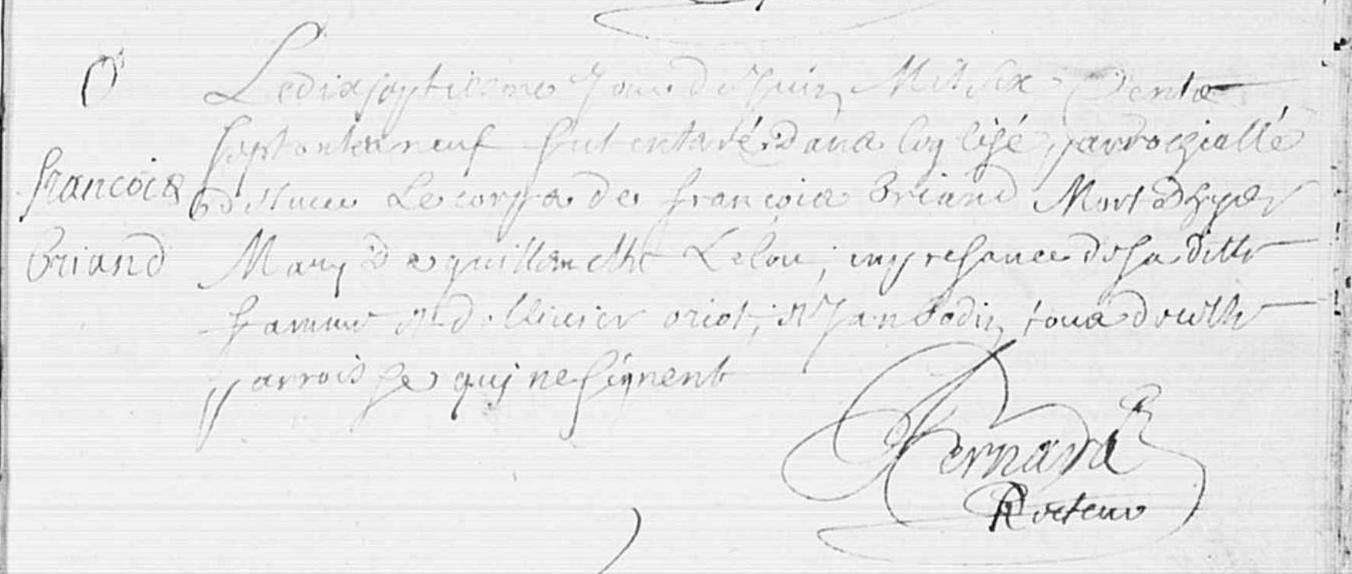 Le dixseptiesme Jour de Juin Mil Six Cents
francois
septente neuf fut enteré dans l'eglisé parrochiallé
Le corps de francois Briand Mort d'hyer
Briand
Mary de guillemette Lelou, en presance de sa ditte
famme et d'ollivier oriot, et Jan Bodin tous de cette
parroisse qui ne signent
Bernard
Recteur